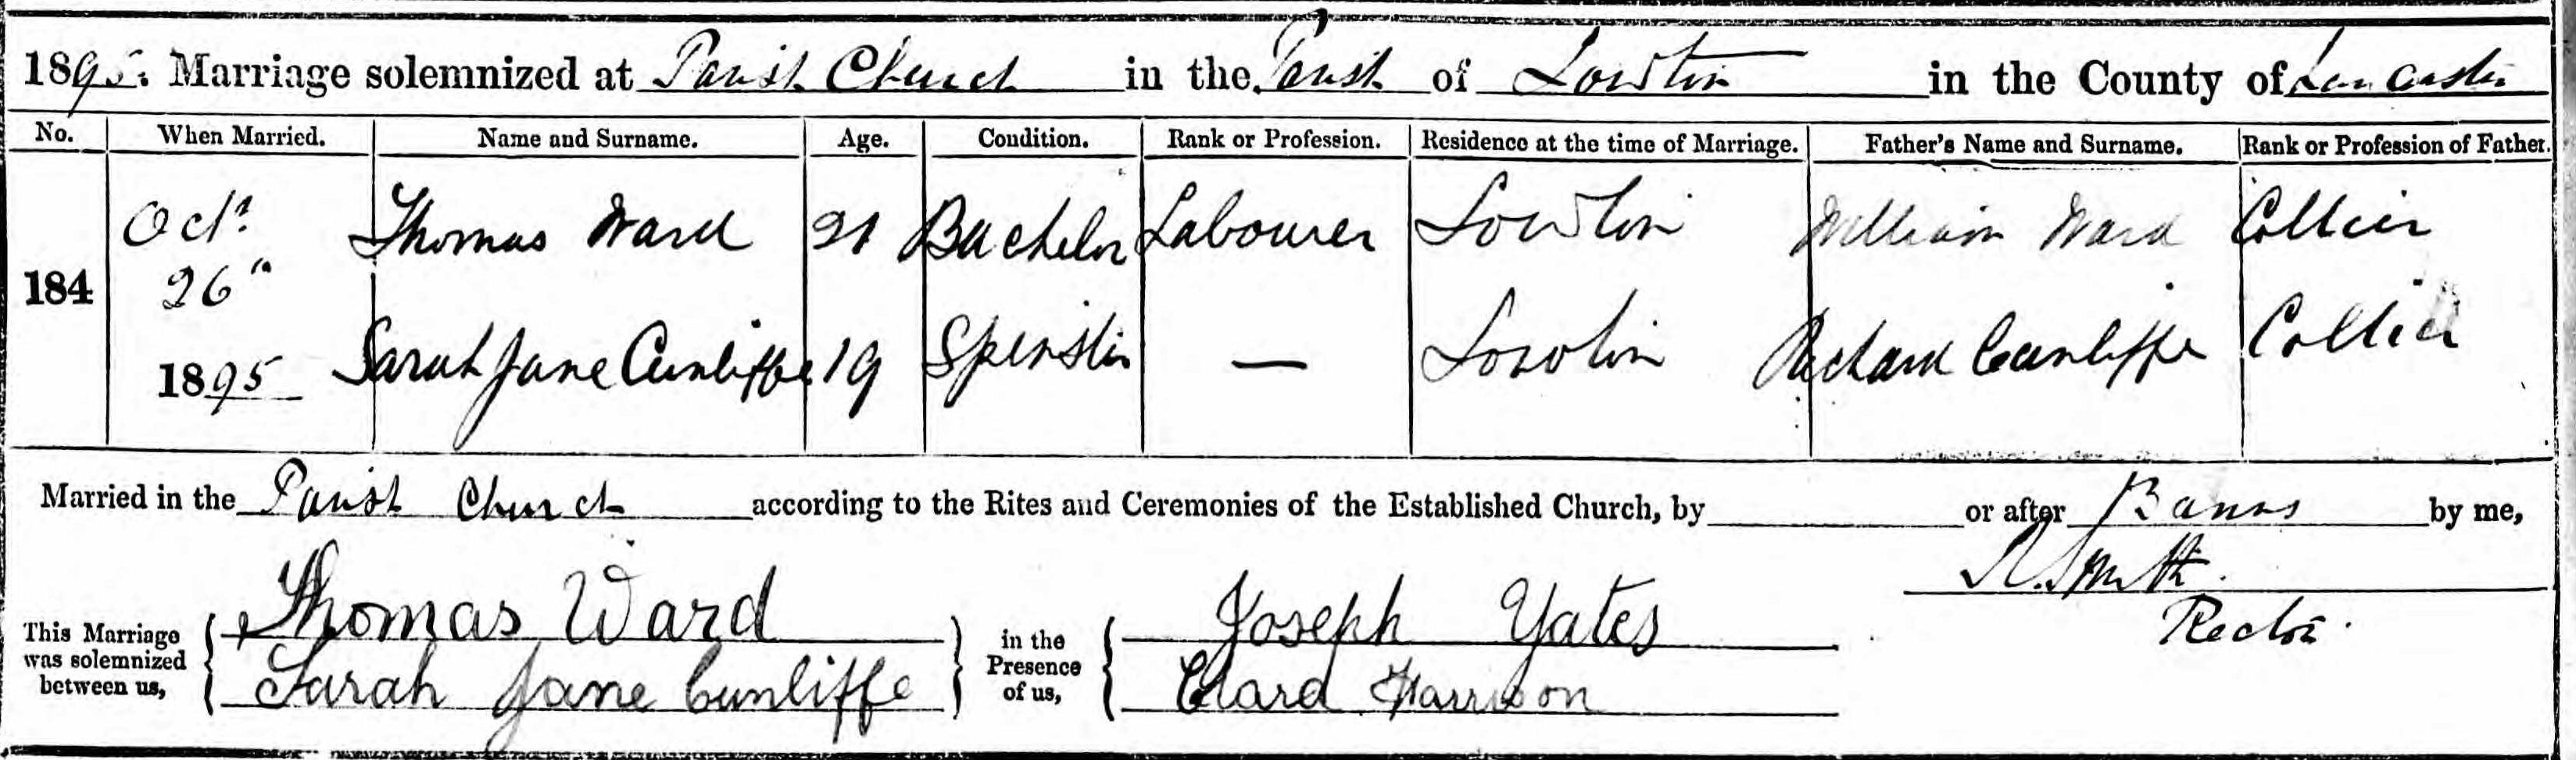 1895. Marriage solemnized at Parish Church in the Parish of Lowton in the County of Lancaster
No. When Married. Name and Surname. Age. Condition. Rank or Profession. Residence at the time of Marriage. Father's Name and Surname. Rank or Profession of Father.
184 Octr 26th 1895 Thomas Ward 21 Bachelor Labourer Lowton William Ward Collier
Sarah Jane Cunliffe 19 Spinster — Lowton Richard Cunliffe Collier
Married in the Parish Church according to the Rites and Ceremonies of the Established Church, by or after Banns by me,
Smith
Rector.
This Marriage was solemnized between us, Thomas Ward in the Presence of us, Joseph Yates
Sarah Jane Cunliffe Clara Harrison